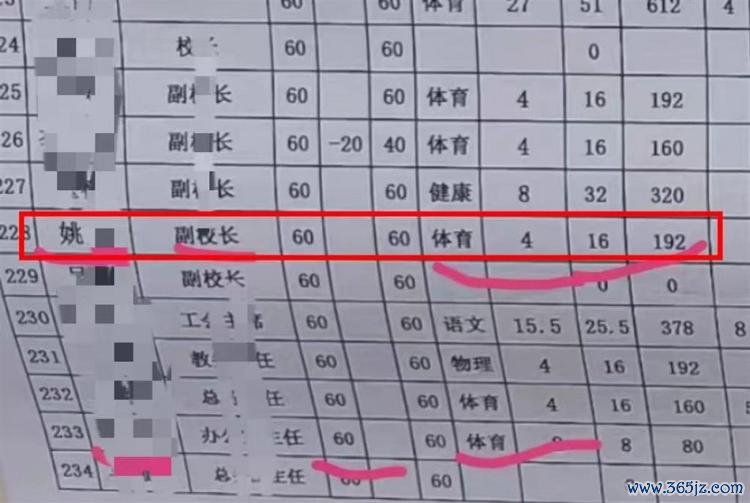 60 60 体育 27 51 612 4
224 校长 60 60 0
225 副校长 60 60 体育 4 16 192
226 副校长 60 -20 40 体育 4 16 160
227 副校长 60 60 健康 8 32 320
228 姚 副校长 60 60 体育 4 16 192
229 副校长 60 60 0 0
230 工会主席 60 60 语文 15.5 25.5 378 8
231 教 任 60 60 物理 4 16 192
232 总 任 60 60 体育 4 16 160 5
233 办公 主任 60 60 体育 8 80
234 总 主任 60 60
www.365jz.com